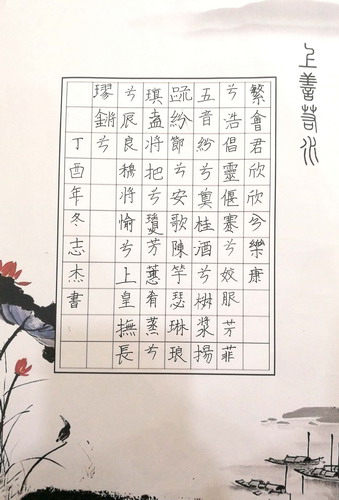 上善若水
繁會君欣欣兮樂康
兮浩倡靈偃蹇兮姣服芳菲
五音紛兮奠桂酒兮椒漿揚
疏紛節兮安歌陳竽瑟琳琅
瑱盍將把兮瓊芳蕙肴蒸兮
兮辰良穆將愉兮上皇撫長
璆鏘兮
丁酉年冬志杰書